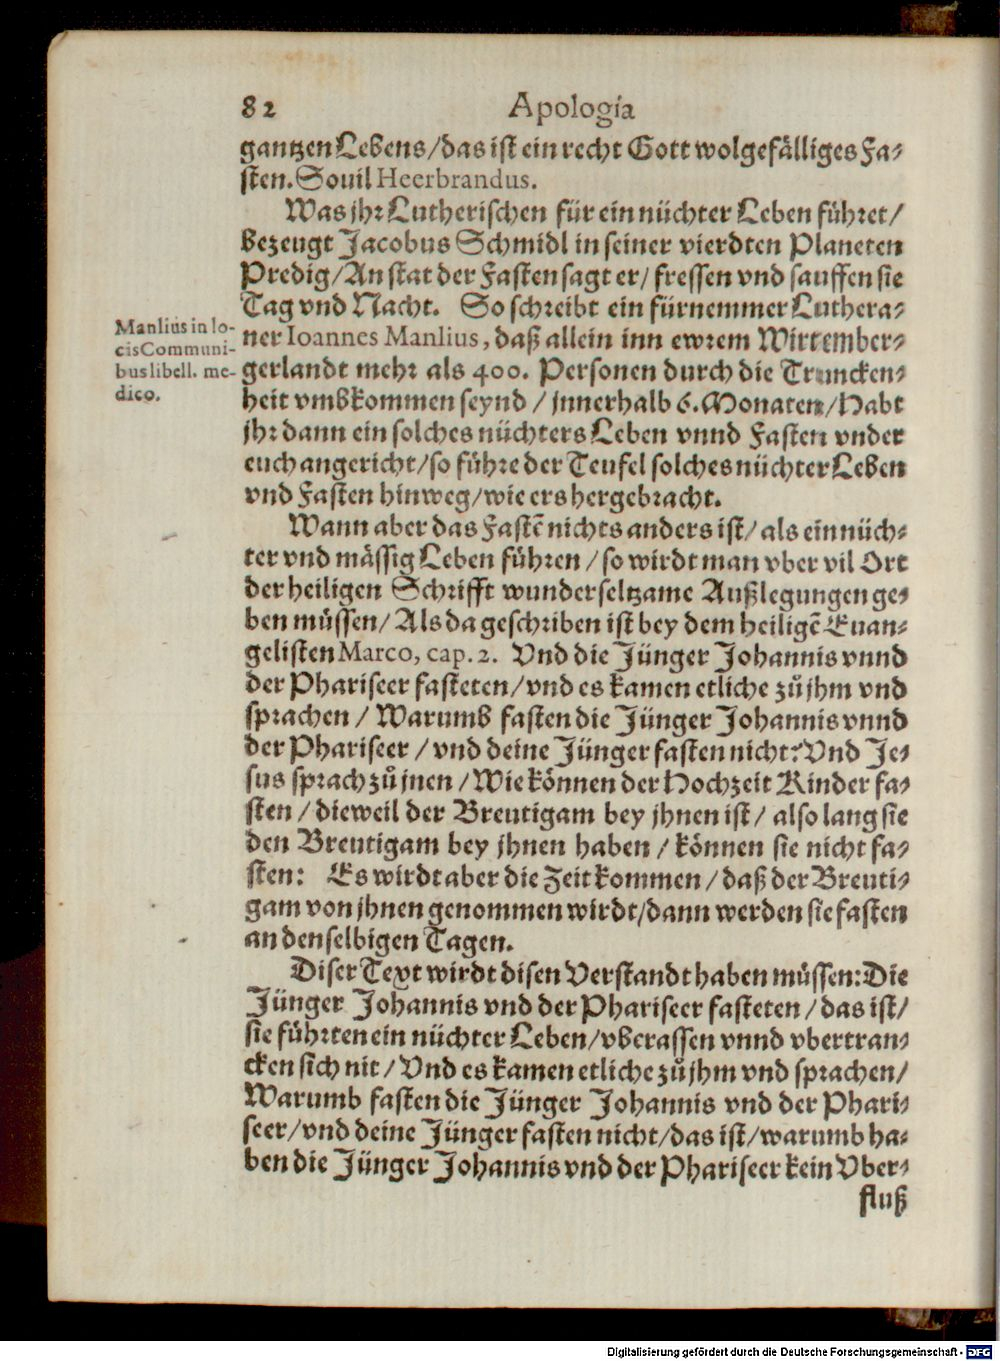 82 Apologia
gantzen Lebens/das ist ein recht Gott wolgefälliges Fa-
sten. Souil Heerbrandus.
Was jhr Lutherischen für ein nüchter Leben führet/
bezeugt Jacobus Schmidl in seiner vierdten Planeten
Predig/An stat der Fasten sagt er/ fressen vnd sauffen sie
Tag vnd Nacht. So schreibt ein fürnemmer Luthera-
ner Ioannes Manlius, daß allein inn ewrem Wirtember-
gerlandt mehr als 400. Personen durch die Truncken-
heit vmbkommen seynd / jnnerhalb 6. Monaten/Habt
jhr dann ein solches nüchters Leben vnnd Fasten vnder
euch angericht/so führe der Teufel solches nüchter Leben
vnd Fasten hinweg/wie ers hergebracht.
Manlius in lo-
cis Communi-
bus libell. me-
dico.
Wann aber das Fastē nichts anders ist/ als ein nüch-
ter vnd mässig Leben führen / so wirdt man vber vil Ort
der heiligen Schrifft wunderseltzame Außlegungen ge-
ben müssen/ Als da geschriben ist bey dem heiligē Euan-
gelisten Marco, cap. 2. Vnd die Jünger Johannis vnnd
der Phariseer fasteten/vnd es kamen etliche zů jhm vnd
sprachen / Warumb fasten die Jünger Johannis vnnd
der Phariseer / vnd deine Jünger fasten nicht? Vnd Je-
sus sprach zů jnen / Wie können der Hochzeit Kinder fa-
sten / dieweil der Breutigam bey jhnen ist/ also lang sie
den Breutigam bey jhnen haben / können sie nicht fa-
sten: Es wirdt aber die Zeit kommen / daß der Breuti-
gam von jhnen genommen wirdt/dann werden sie fasten
an denselbigen Tagen.
Diser Text wirdt disen Verstandt haben müssen: Die
Jünger Johannis vnd der Phariseer fasteten / das ist/
sie führten ein nüchter Leben/vberassen vnnd vbertran-
cken sich nit / Vnd es kamen etliche zů jhm vnd sprachen/
Warumb fasten die Jünger Johannis vnd der Phari-
seer/vnd deine Jünger fasten nicht/das ist/warumb ha-
ben die Jünger Johannis vnd der Phariseer kein Vber-
fluß
Digitalisierung gefördert durch die Deutsche Forschungsgemeinschaft - DFG